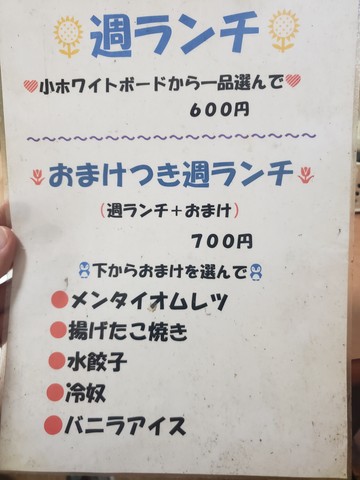 週ランチ
小ホワイトボードから一品選んで
６００円
おまけつき週ランチ
（週ランチ＋おまけ）
７００円
下からおまけを選んで
●メンタイオムレツ
●揚げたこ焼き
●水餃子
●冷奴
●バニラアイス